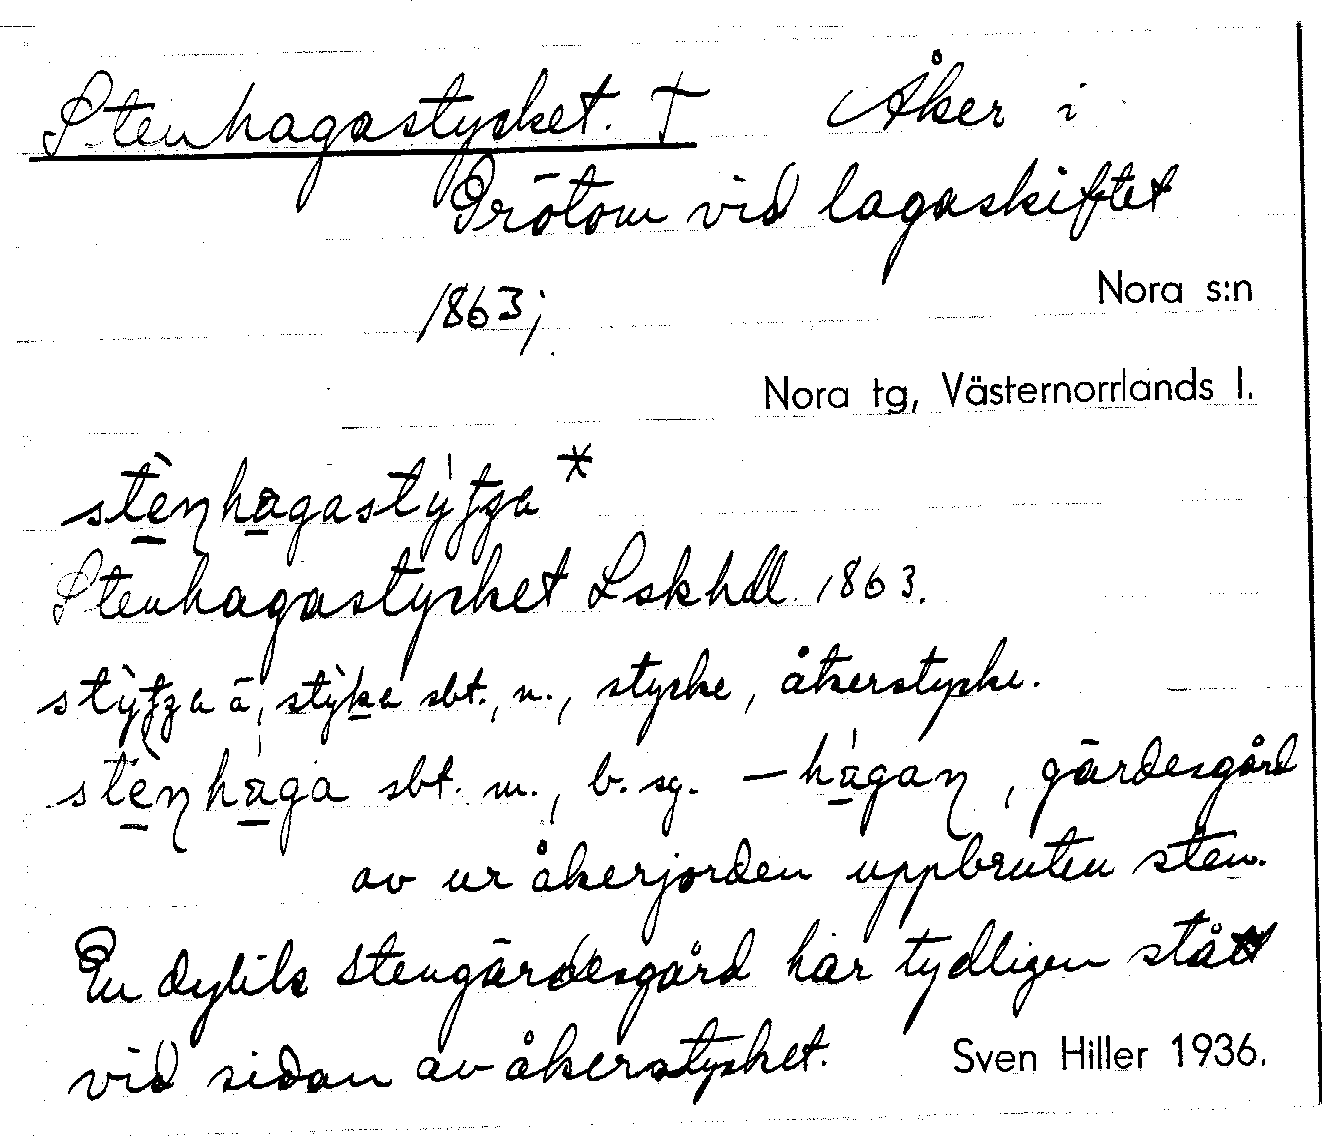 Stenhagastycket. † Åker i
Grötom vid lagaskiftet
1863;
Nora s:n
Nora tg, Västernorrlands l.
Stenhagastycket Lskhdl 1863.
sbt., n., stycke, åkerstycke.
sbt. m., b. sg. gärdesgård
av ur åkerjorden uppbruten sten.
En dylik stengärdesgård har tydligen stått
vid sidan av åkerstycket.
Sven Hiller 1936.